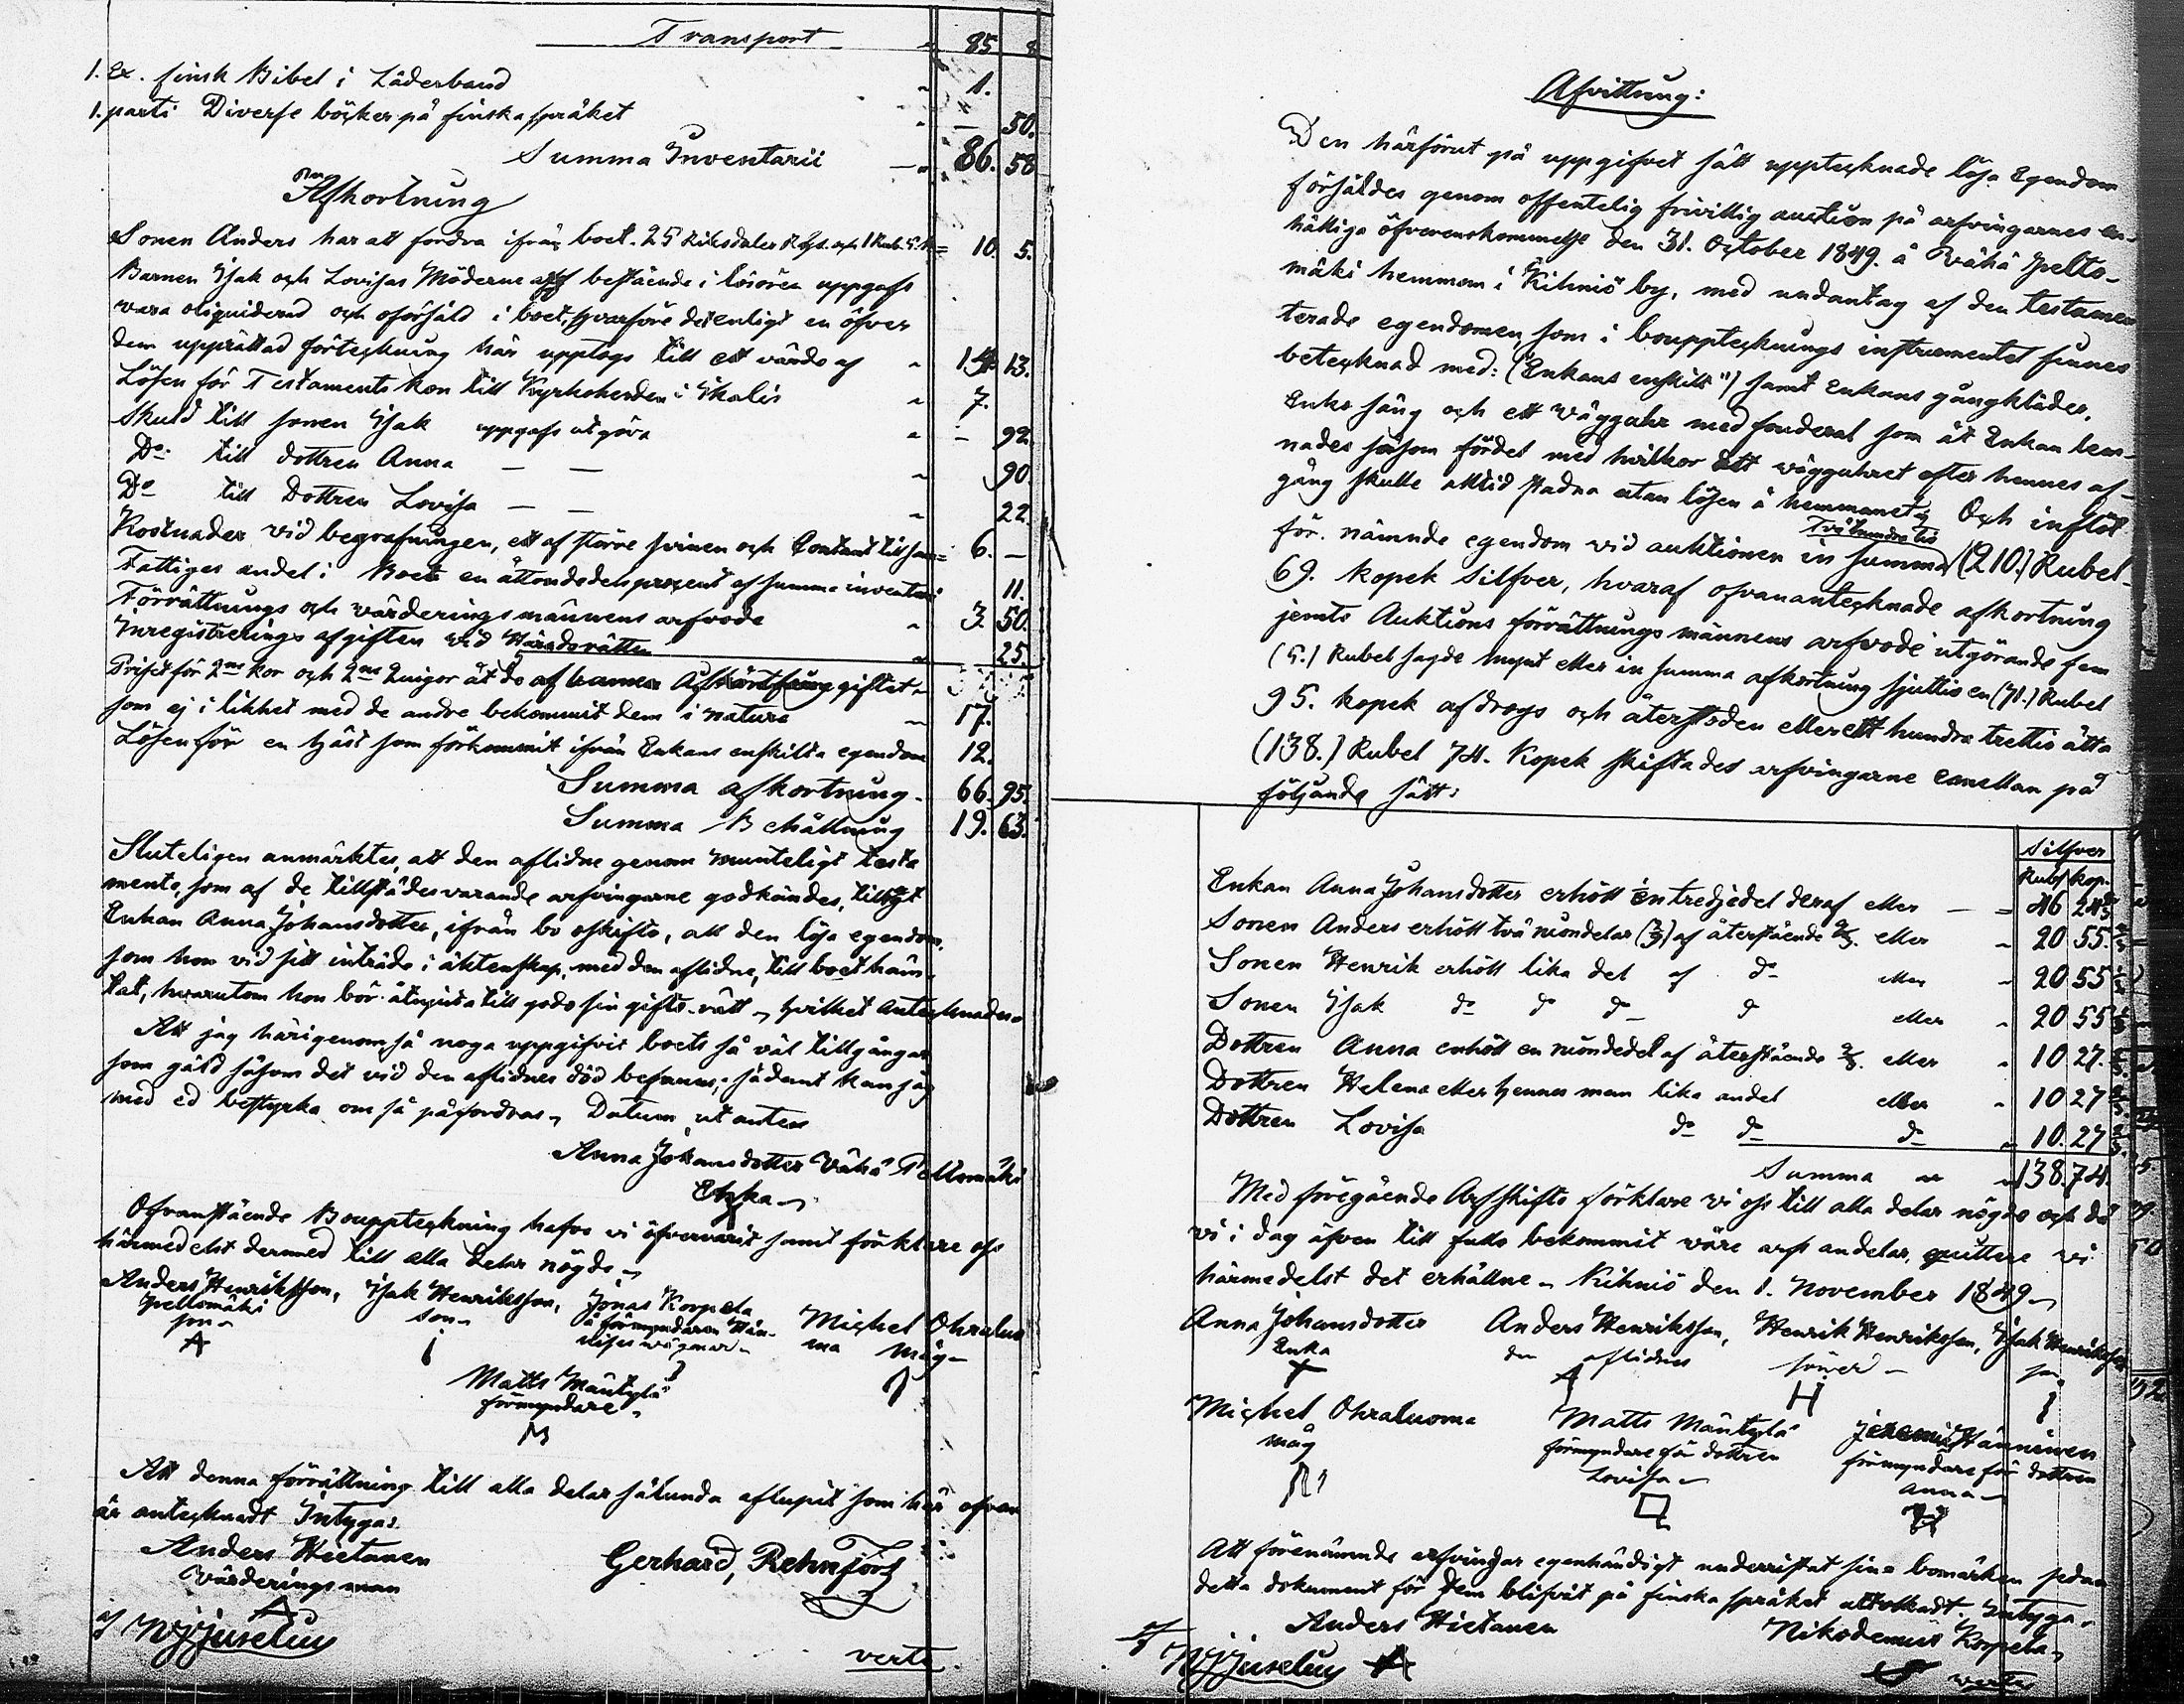 Transport 85 8
1. Ex. finsk Bibel i Läderband 1.
1. parti Diverse böcker på finska språket — 50.
Summa Inventarii — 86. 58
Afkortning
Sonen Anders har att fordra ifrån boet. 25 Riksdaler Rgs. och 1 Rub. S.M. = 10. 5.
Barnen Isak och Lovisas Möderne arf bestående i lösören uppgafs
vara oliquiderad och oförsåld i boet, hvarföre det enligt en öfver
dem upprättad förteckning här upptogs till ett värde af 14. 13.
Lösen för Testaments kon till Kyrkoherden i Ikalis 7.
Skuld till sonen Isak uppgafs utgöra — 92
Do till dottren Anna — — 90
Do till Dottren Lovisa — — 22
Kostnader vid begrafningen, ett af större svinen och Contant tillsam= 6. —
Fattiges andel i Boet en åttondedels procent af summa inventarii 11.
Förrättnings och värderingsmännens arfvode 3. 50.
Inregistrerings afgiften vid Häradsrätten 25.
Priset för 2ne kor och 2ne Quigor åt de af barnen giftet
som ej i likhet med de andre bekommit dem i natura 17.
Lösen för en häst som förkommit ifrån Enkans enskilta egendom 12.
Summa afkortning. 66. 95.
Summa Behållning 19. 63.
Sluteligen anmärktes, att den aflidne genom munteligt testa
mente, som af de tillstädesvarande arfvingarne godkändes, tillagt
Enkan Anna Johansdotter, ifrån bo oskifto, all den lösa egendom,
som hon vid sitt inträde i äktenskap, med den aflidne, till boet häm
tat, hvarutom hon bör åtnjuta till godo sin gifto-rätt, hvilket antecknades
Att jag härigenom så noga uppgifvit boets så väl tillgångar
som gäld såsom det vid den aflidnes död befanns, sådant kan jag
med ed bestyrka om så påfordras, Datum ut antea
Anna Johansdotter Vähä Peltomäki
Enka
Ofvanstående Bouppteckning hafve vi öfvervarit samt förklare oss
härmedelst dermed till alla delar nögde
Anders Henriksson, Isak Henriksson, Jonas Korpela Michel Ohraluo
Peltomäki son i förmyndaren Hän- ma måg
son ninens vägnar
A I
Matts Mäntylä
förmyndare
M
Att denna förrättning till alla delar sålunda aflupit som här ofvan
är antecknadt Intygas
Anders Hietanen Gerhard Rehnfors
Värderingsman
A
af WJJuselius
verte.
Afvittring:
Den härförut på uppgifvet sätt upptecknade lösa Egendom
försåldes genom offentelig frivillig auction på arfvingarnes en-
hälliga öfverenskommelse den 31. October 1849. å Vähä Pelto-
mäki hemman i Kihniö by, med undantag af den testamen
terade egendomen som i bouppteckningsinstrumentet finnes
betecknad med: ("Enkans enskilt") samt Enkans gångkläder,
Enko säng och ett vägguhr med fouderal som åt Enkan lem-
nades såsom fördel med vilkor att vägguhret efter hennes af-
gång skulle alltid stadna utan lösen å hemmanet. Och inflöt
Tvåhundra tio
för nämnde egendom vid auktionen in summa (210.) Rubel
69. kopek Silfver, hvaraf ofvanantecknade afkortning
jemte Auktions förrättningsmännens arfvode utgörande fem
(5.) Rubel sagde mynt eller in summa afkortning sjuttio en (71.) Rubel
95. kopek afdrogs och återstoden eller ett hundra trettio åtta
(138.) Rubel 74. Kopek skiftades arfvingarne emellan på
följande sätt:
Silfver
Rubl Kop.
Enkan Anna Johansdotter erhöll en tredjedel deraf eller — 46 24
Sonen Anders erhöll två niondelar (2/9) af återstående 2/3. eller 20 55
Sonen Henrik erhöll lika del af do eller 20 55
Sonen Isak do do do do eller 20 55
Dottren Anna erhöll en niondedel af återstående 2/3. eller 10 27
Dottren Helena eller hennes man lika andel eller 10 27
Dottren Lovisa do do do 10. 27
Summa 138. 74.
Med föregående Arfskifte förklare vi oss till alla delar nögde och då
vi i dag äfven till fullo bekommit våre arfs andelar, quittere vi
härmedelst det erhållne. Kihniö den 1. November 1849.
Anna Johansdotter Anders Henriksson, Henrik Henriksson, Isak Henriksson
Enka den aflidnes söner son
A H I
Michel Ohraluoma Matts Mäntylä Jeremias Hänninen
måg förmyndare för dottren förmyndare för dottren
Lovisa Anna
Att förenämnde arfvingar egenhändigt underritat sina bomärken sedan
detta dokument för dem blifvit på finska språket uttolkadt, Intyga,
Anders Hietanen Nikodemus Korpela
af WJJuselius A
verte